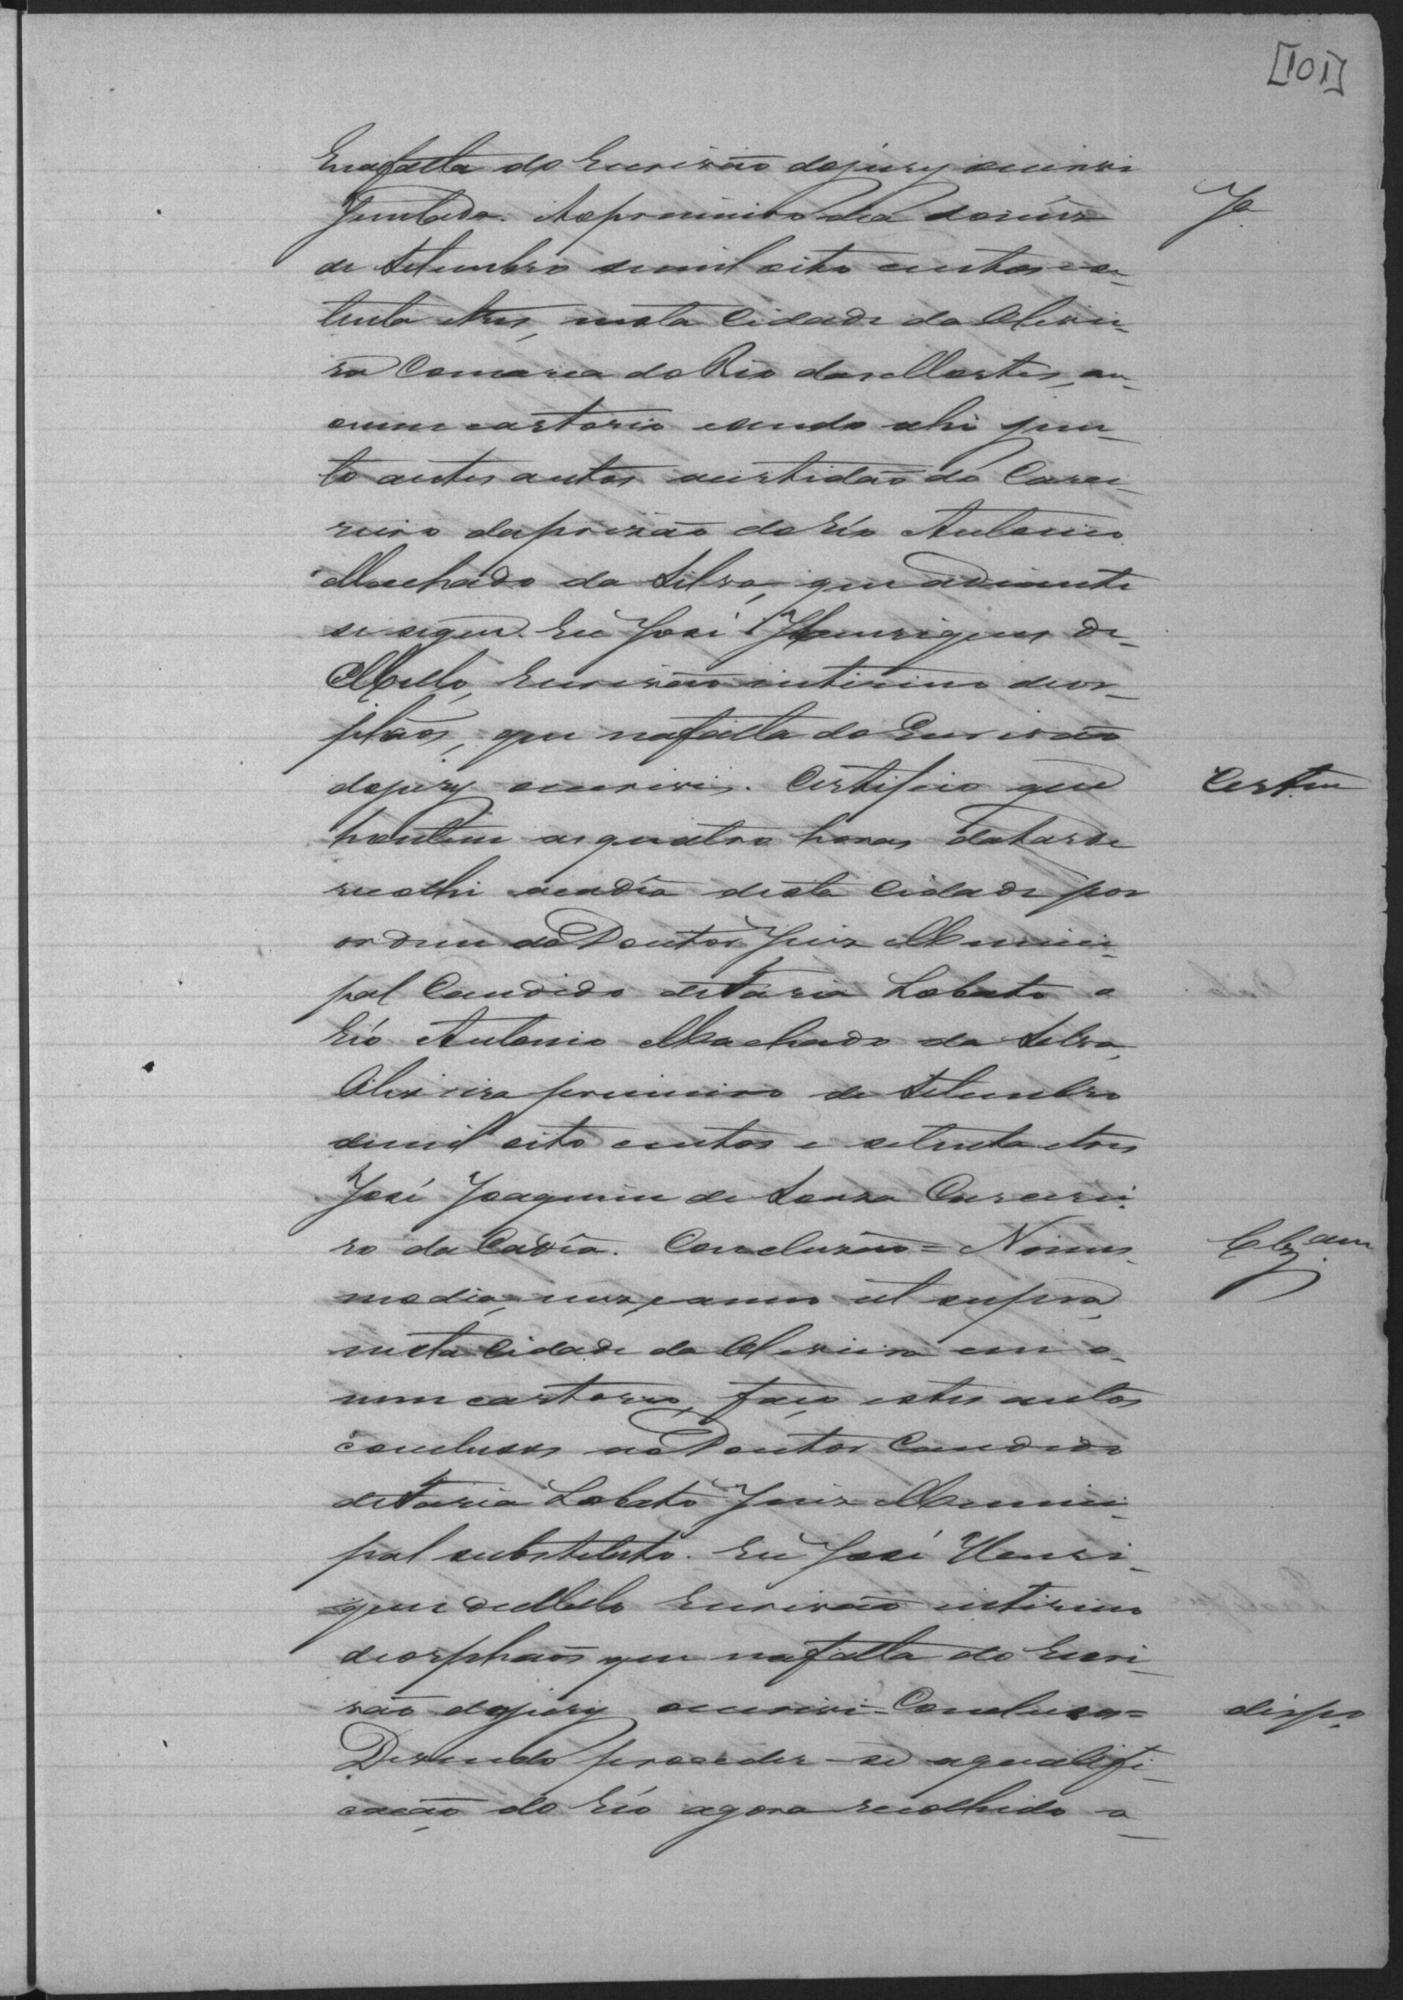 [101]
Enafalta do Escrivão dojury escrevi
Juntada. Aoprimeiro dia domez J.ª
de Setembro demil oito centos e se-
tenta etres, nesta Cidade da Olivei-
ra Comarca do Rio das Mortes, em
omeu cartorio esendo ahi jun-
to aestes autos acertidão do Carce-
reiro daprizão do Réo Antonio
Machado da Silva, que adiante
se segue. Eu José Henriques de
Mello, Escrivão interino deor-
phãos, que nafalta do Escrivão
dojury escrevi. Certifico que Certm
hontem asquatro horas datarde
recolhi acadêa desta Cidade por
ordem do Doutor Juiz Munici-
pal Candido deFaria Lobato o
Réo Antonio Machado da Silva,
Oliveira primeiro de Setembro
demil oito centos e setenta etres
José Joaquim de Souza Carcerei-
ro da Cadêa. Conclusão = No mes- Clzam
mo dia, mez, eanno ut supra,
nesta Cidade da Oliveira em o
meu cartorio, faço estes autos
conclusos ao Doutor Candido
deFaria Lobato Juiz Munici-
pal substituto. Eu José Henri-
ques deMello Escrivão interino
deorphãos que nafalta do Escri-
vão dojury escrevi = Conclusos = dispo
Devendo proceder-se aqualifi-
cação do Réo agora recolhido a